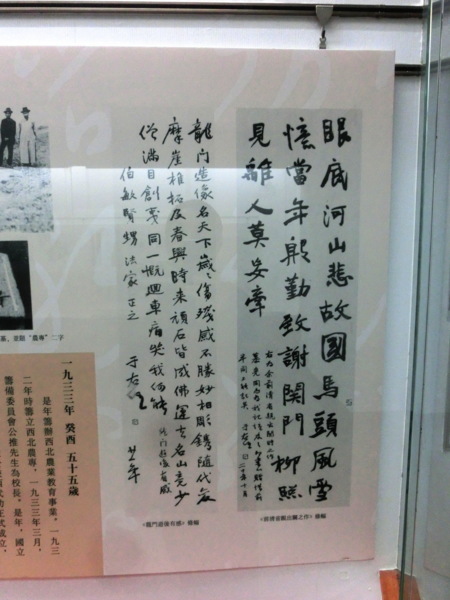 眼底河山悲故國馬頭風雪
憶當年殷勤致謝関門柳照
見離人莫妄牽
龍门造像名天下歲〻傷殘感不勝妙相彫鐫隨代異
摩崖椎拓及春興時来頑石皆成佛運去名山竟少
僧滿目創夷同一慨迴車痛哭我何能
伯敏賢甥法家正之 于右任
《龍門造像有感》條幅
“農專”二字
一九三三年 癸酉 五十五歲
是年籌辦西北農業教育事業，一九三
二年時籌立西北農專，一九三三年三月，
籌備委員會公推先生為校長，是年，國立